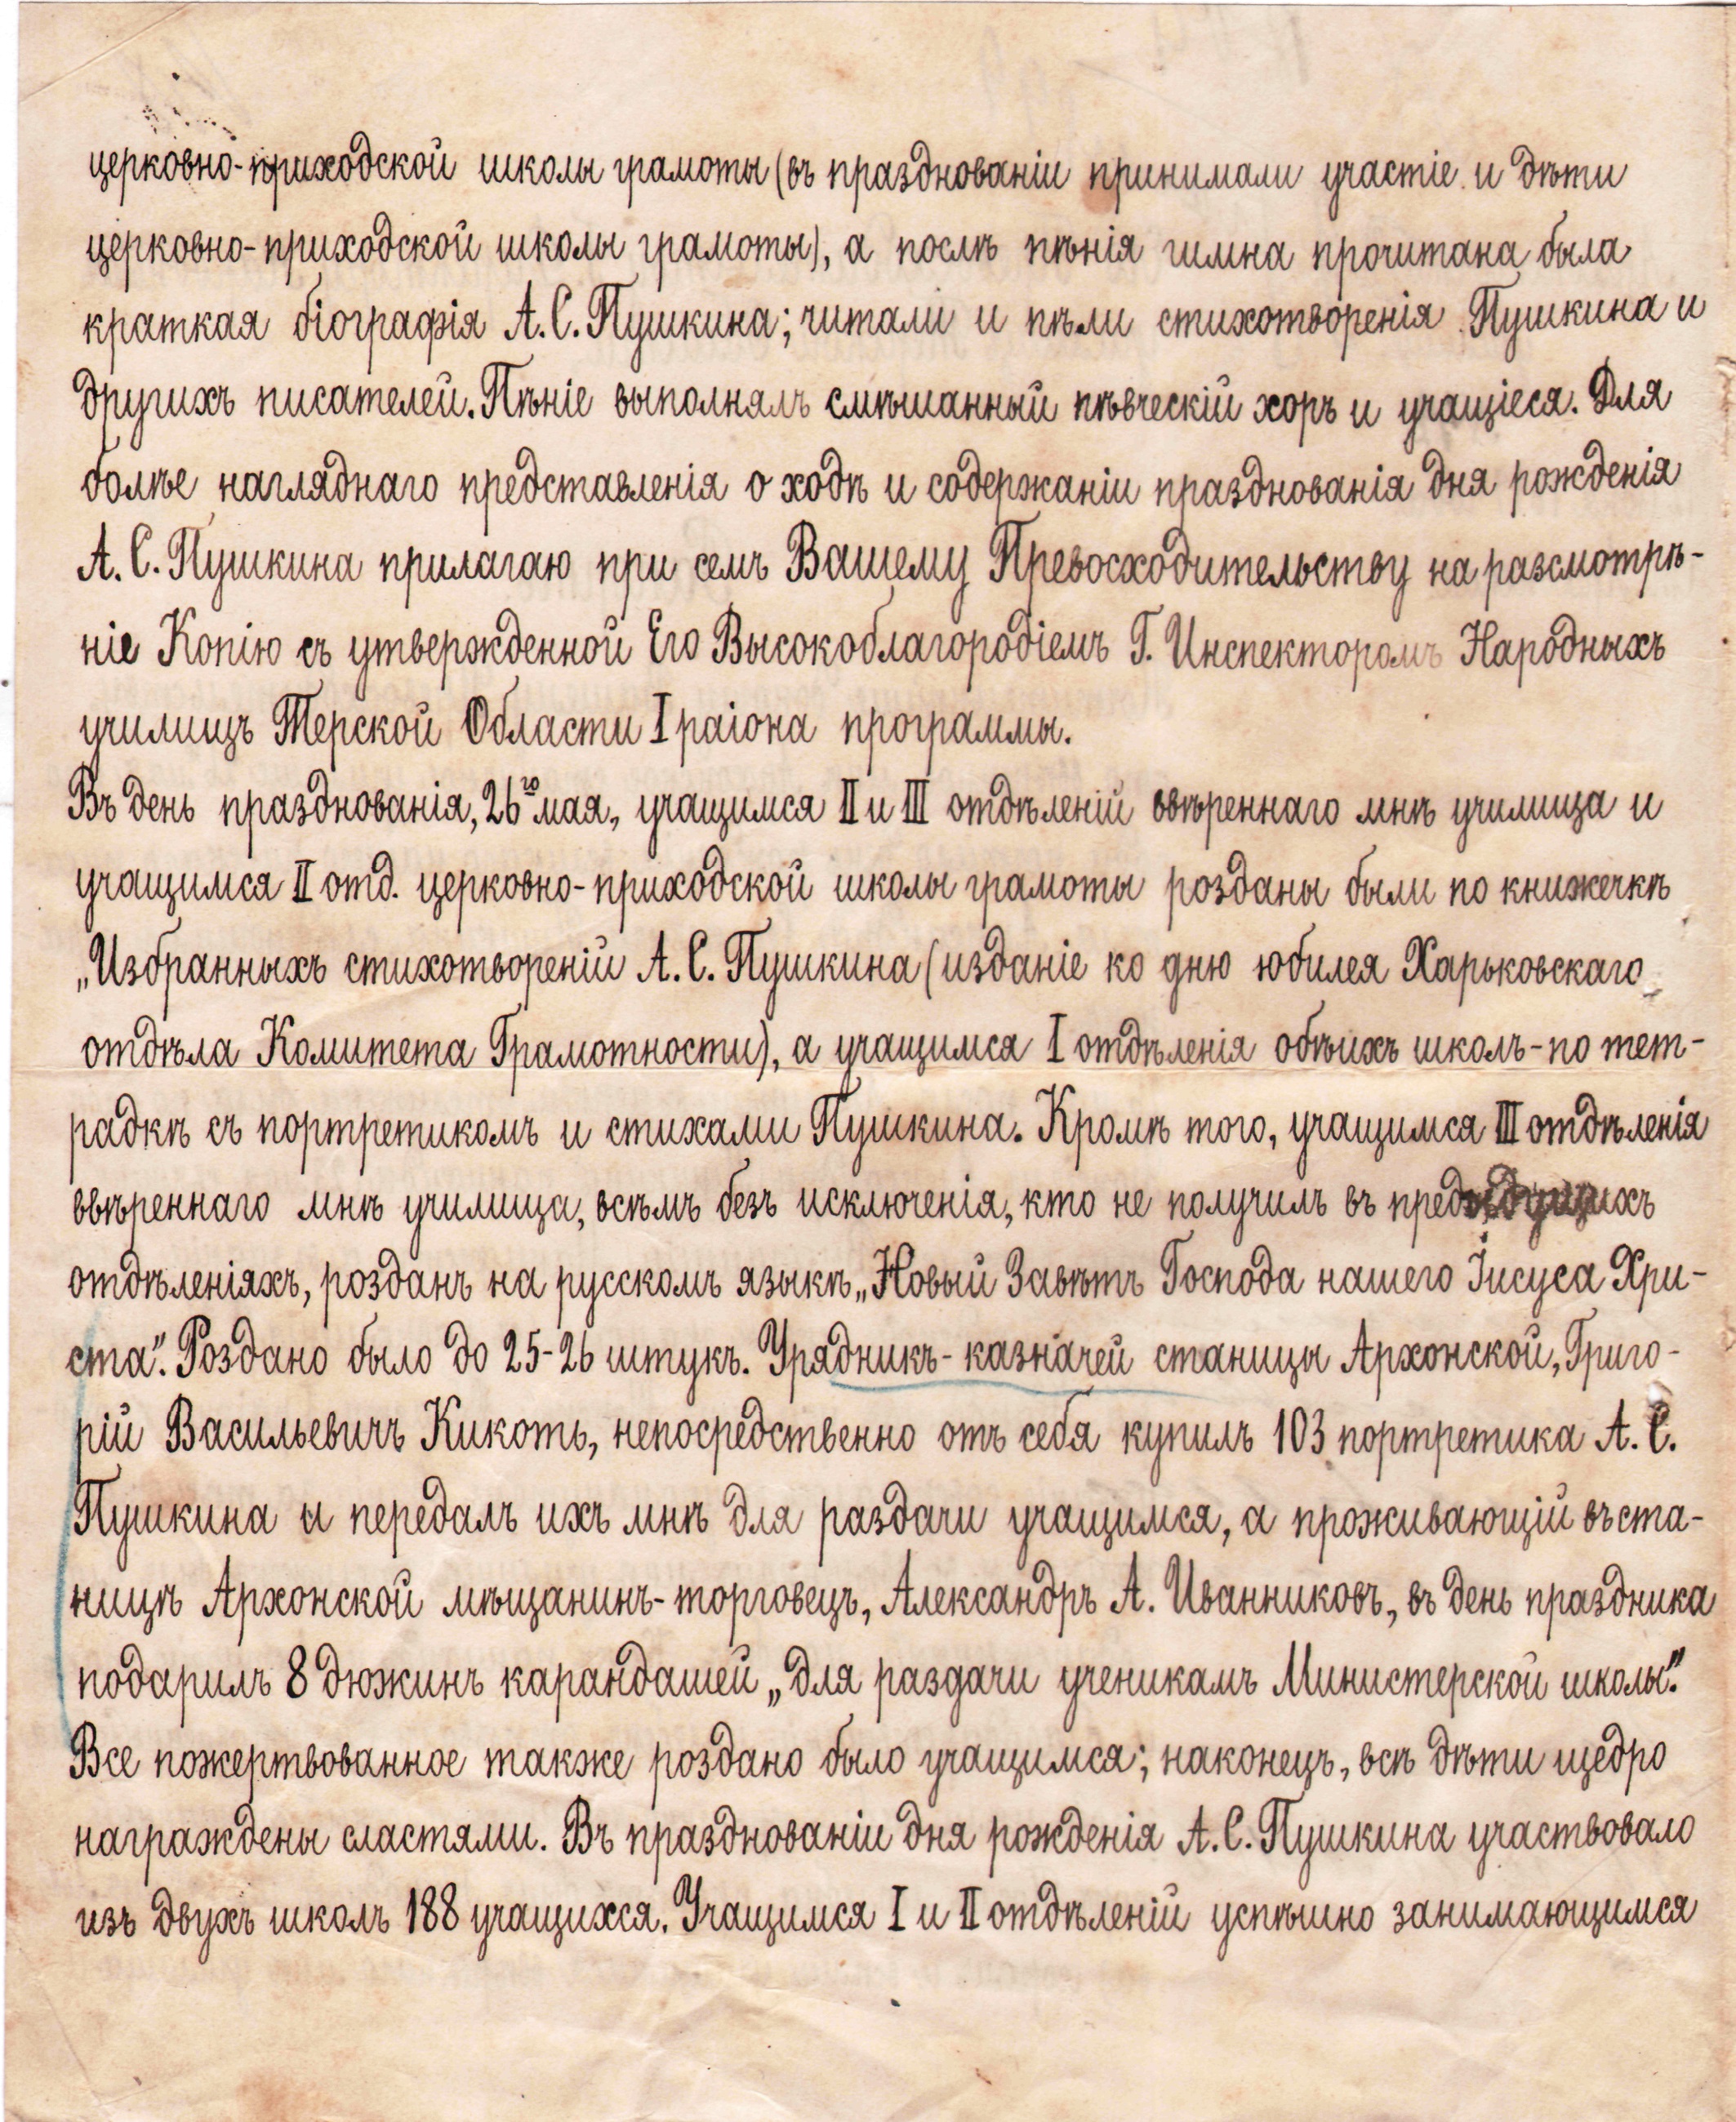 церковно-приходской школы грамоты (въ празднованіи принимали участіе и дѣти
церковно-приходской школы грамоты), а послѣ пѣнія гимна прочитана была
краткая біографія А. С. Пушкина; читали и пѣли стихотворенія Пушкина и
другихъ писателей. Пѣніе выполнялъ смѣшанный пѣвческій хоръ и учащіеся. Для
болѣе нагляднаго представленія о ходѣ и содержаніи празднованія дня рожденія
А. С. Пушкина прилагаю при семъ Вашему Превосходительству на разсмотрѣ-
ніе Копію съ утвержденной Его Высокоблагородіемъ Г. Инспекторомъ Народныхъ
училищъ Терской Области I раіона программы.
Въ день празднованія, 26го мая, учащимся II и III отдѣленій ввѣреннаго мнѣ училища и
учащимся II отд. церковно-приходской школы грамоты розданы были по книжечкѣ
„Избранныхъ стихотвореній А. С. Пушкина (изданіе ко дню юбилея Харьковскаго
отдѣла Комитета Грамотности), а учащимся I отдѣленія обѣихъ школъ - по тет-
радкѣ съ портретикомъ и стихами Пушкина. Кромѣ того, учащимся III отдѣленія
ввѣреннаго мнѣ училища, всѣмъ безъ исключенія, кто не получилъ въ предыдущихъ
отдѣленіяхъ, розданъ на русскомъ языкѣ „Новый Завѣтъ Господа нашего Іисуса Хри-
ста". Роздано было до 25-26 штукъ. Урядникъ-казначей станицы Архонской, Григо-
рій Васильевичъ Кикоть, непосредственно отъ себя купилъ 103 портретика А. С.
Пушкина и передалъ ихъ мнѣ для раздачи учащимся, а проживающій въ ста-
ницѣ Архонской мѣщанинъ-торговецъ, Александръ А. Иванниковъ, въ день праздника
подарилъ 8 дюжинъ карандашей „для раздачи ученикамъ Министерской школы".
Все пожертвованное также роздано было учащимся; наконецъ, всѣ дѣти щедро
награждены сластями. Въ празднованіи дня рожденія А. С. Пушкина участвовало
изъ двухъ школъ 188 учащихся. Учащимся I и II отдѣленій успѣшно занимающимся